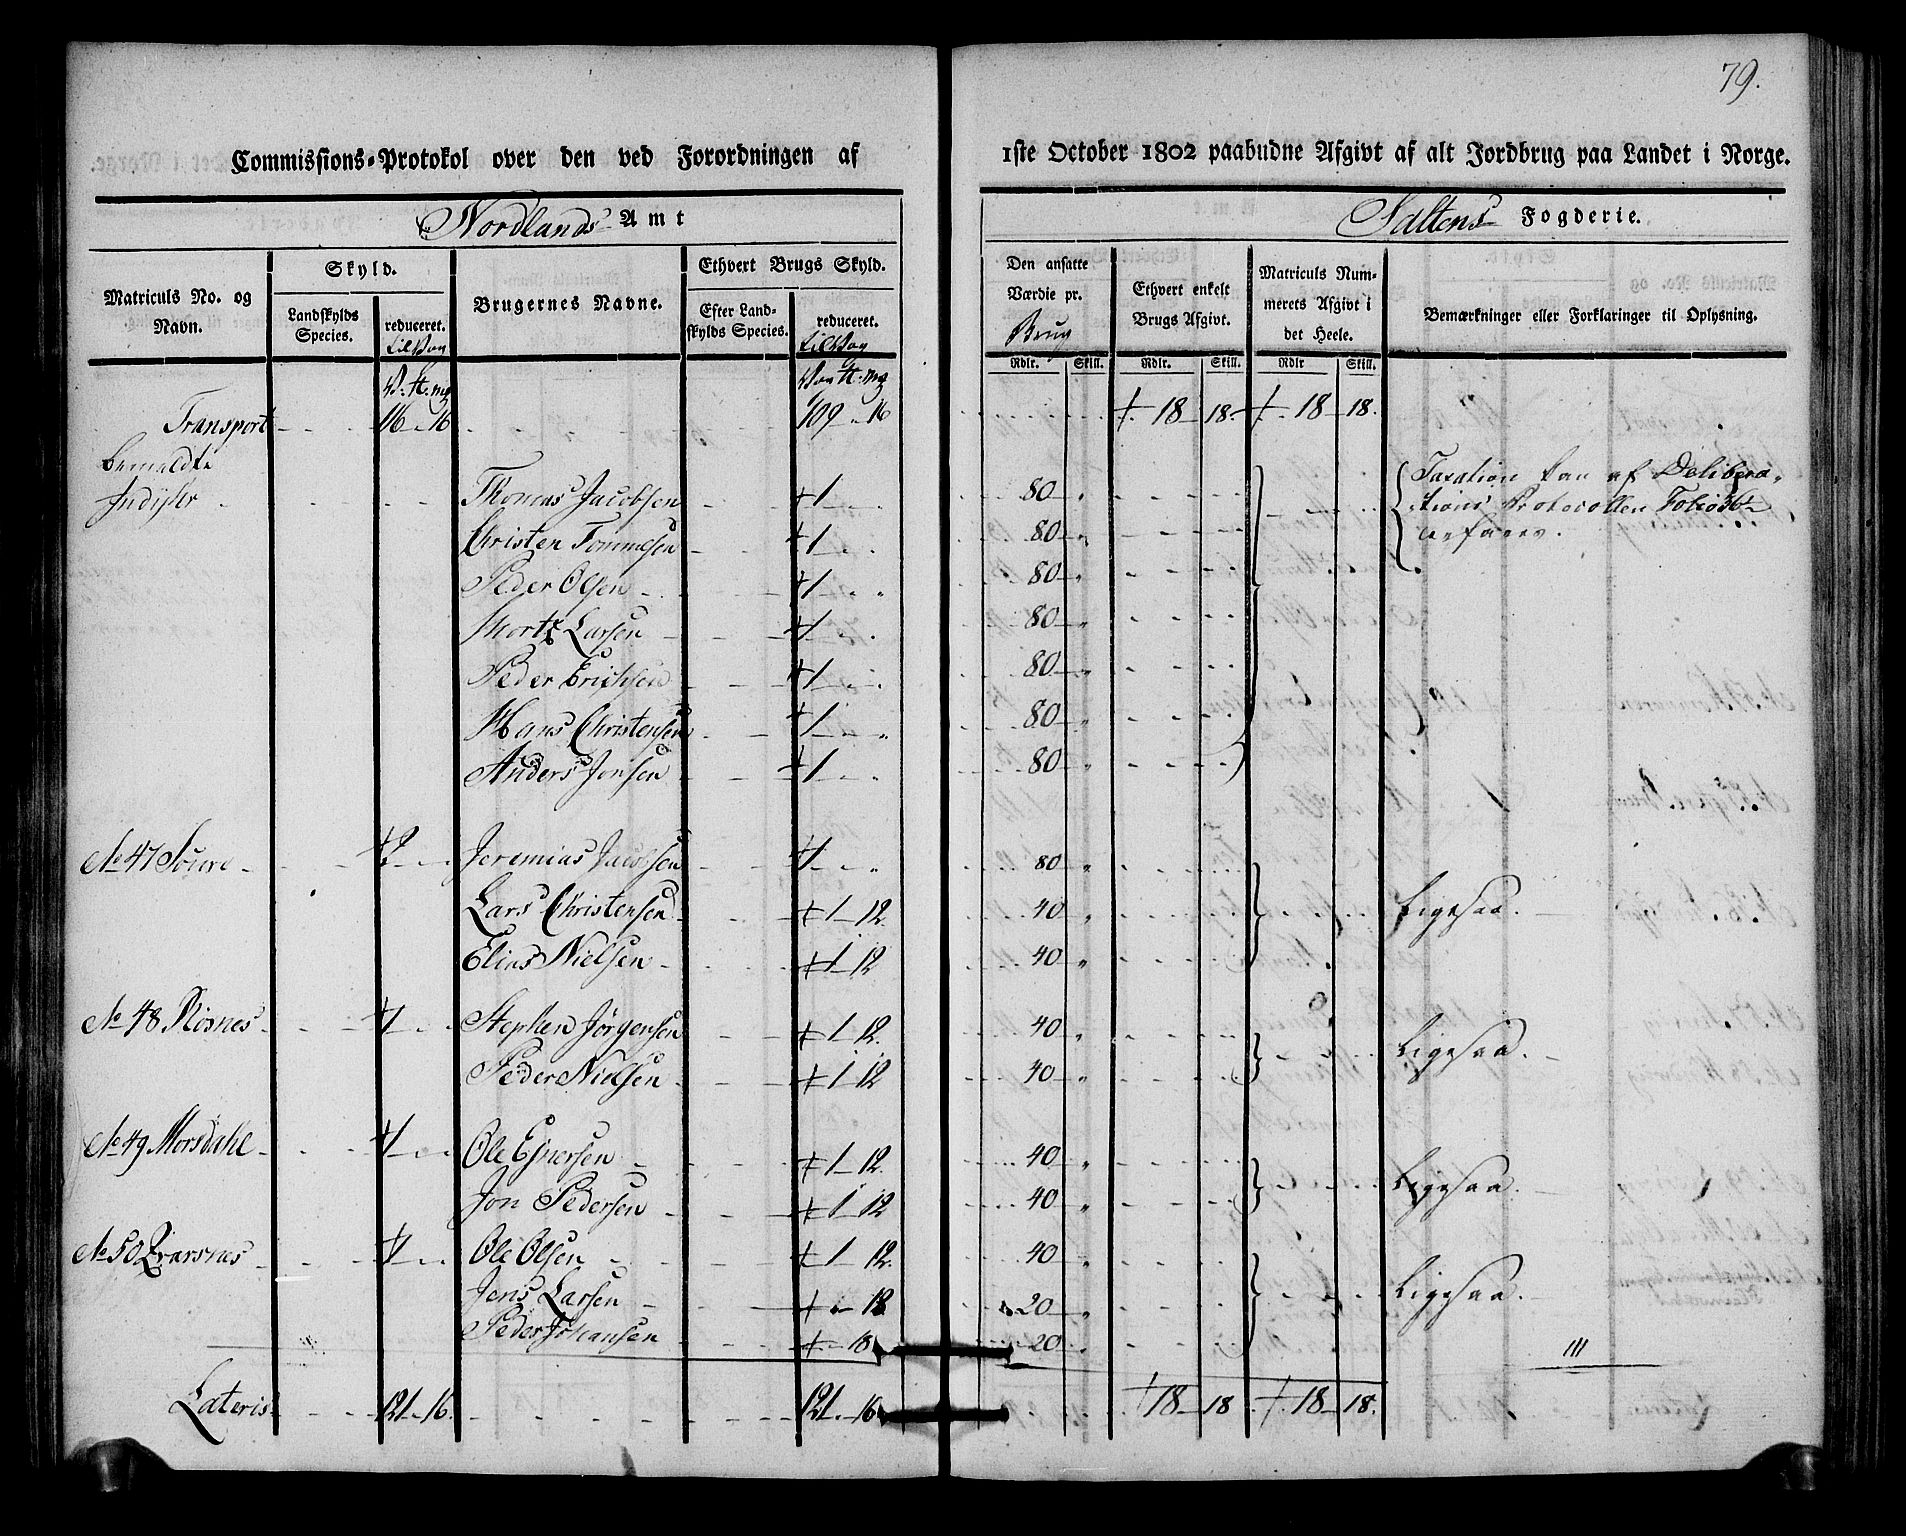 79.
Commissions-Protokol over den ved Forordningen af
1ste October 1802 paabudne Afgivt af alt Jordbrug paa Landet i Norge.
Nordlands Amt
Saltens Fogderie.
Matriculs No. og Navn.
Skyld.
Landskylds Species.
reduceret.
Brugernes Navne.
Ethvert Brugs Skyld.
Efter Landskylds Species.
reduceret.
Den ansatte Værdie pr. Brug
Ethvert enkelt Brugs Afgivt.
Matriculs Nummerets Afgivt i det Heele.
Bemærkninger eller Forklaringer til Oplysning.
Rdlr. Skill. Rdlr. Skill. Rdlr Skill.
Transport 116 " 16 109 " 16 18 18 18 18.
bemeldte
Indijser Thomas Jacobsen 1 80 Taxation kan af Delibera-
Christen Tommesen 1 80 tions Protocollen Folio
Peder Olsen 1 80 erfares.
Mortz Larsen 1 80
Peder Erichsen 1 80
Hans Christensen 1 80
Anders Jonsen 1 80
No 47 2 Jeremias Jacobsen 1 80
Lars Christensen 1 12 40 Ligesaa.
Elias Nielsen 1 12 40
No 48 Rösnes 1 Stephen Jörgensen 1 12 40
Peder Nielsen 1 12 40 Ligesaa.
No 49 Morsdahl 1 Ole Ejnersen 1 12 40
Jon Pedersen 1 12 40 Ligesaa.
No 50 1 Ole Olsen 1 12 40
Jens Larsen " 18 20 Ligesaa.
Peder Johansen " 18 20
Lateris 121 " 16 121 " 16 18 18 18 18.